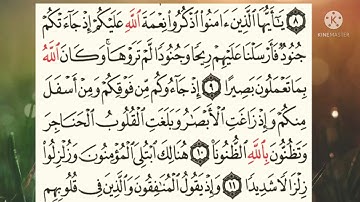 ٨ يَـٰٓأَيُّهَا ٱلَّذِينَ ءَامَنُوا۟ ٱذْكُرُوا۟ نِعْمَةَ ٱللَّهِ عَلَيْكُمْ إِذْ جَآءَتْكُمْ
جُنُودٌ فَأَرْسَلْنَا عَلَيْهِمْ رِيحًا وَجُنُودًا لَّمْ تَرَوْهَا وَكَانَ ٱللَّهُ
بِمَا تَعْمَلُونَ بَصِيرًا ٩ إِذْ جَآءُوكُم مِّن فَوْقِكُمْ وَمِنْ أَسْفَلَ
مِنكُمْ وَإِذْ زَاغَتِ ٱلْأَبْصَـٰرُ وَبَلَغَتِ ٱلْقُلُوبُ ٱلْحَنَاجِرَ
وَتَظُنُّونَ بِٱللَّهِ ٱلظُّنُونَا۠ ١٠ هُنَالِكَ ٱبْتُلِىَ ٱلْمُؤْمِنُونَ وَزُلْزِلُوا۟
زِلْزَالًا شَدِيدًا ١١ وَإِذْ يَقُولُ ٱلْمُنَـٰفِقُونَ وَٱلَّذِينَ فِى قُلُوبِهِم
KINEMASTER